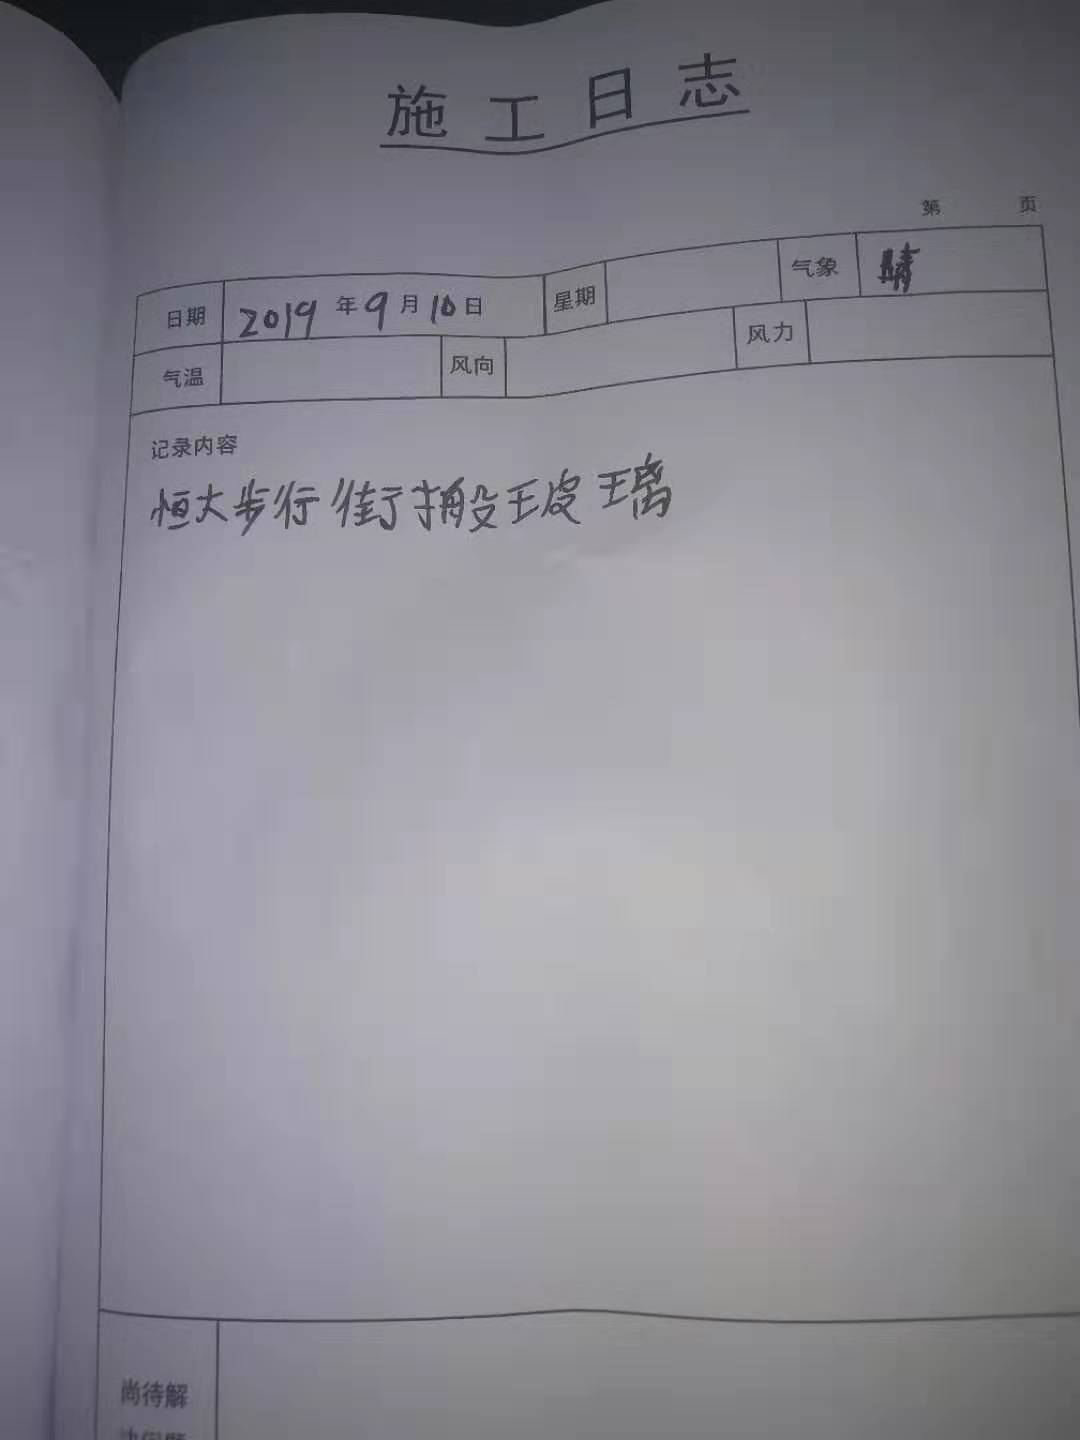 施工日志
第 页
日期 2019年9月10日 星期 气象 晴
气温 风向 风力
记录内容
恒大步行街搬玻璃
尚待解